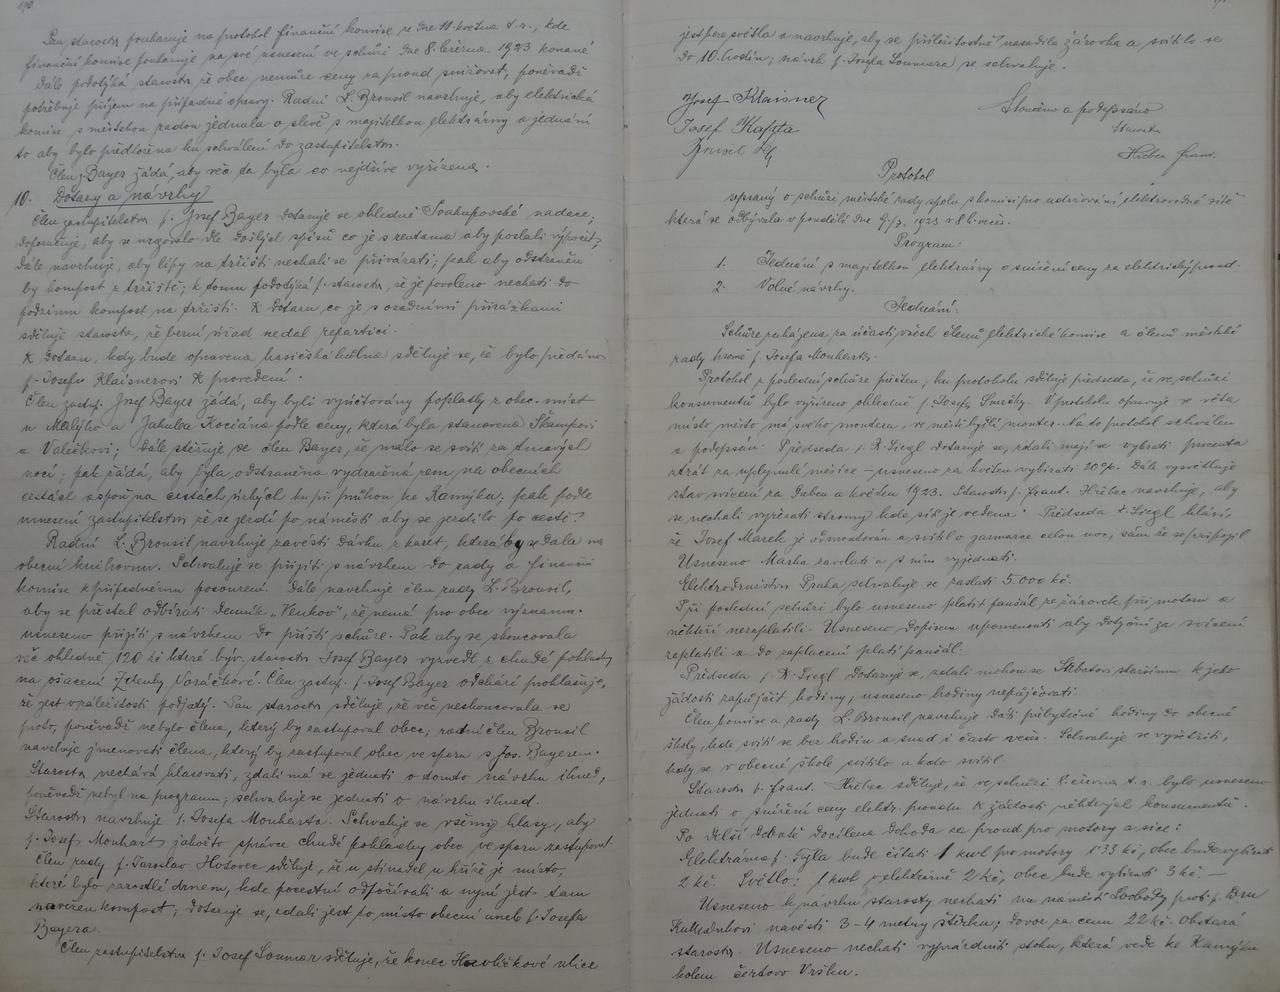 190
Pan starosta poukazuje na protokol finanční komise ze dne 11. května t. r., kde
finanční komise poukazuje na své usnesení ve schůzi dne 8. března 1923 konané
Dále podotýká starosta že obec nemůže ceny za proud snižovat, poněvadž
potřebuje příjem na případné opravy. Radní L. Brousil navrhuje, aby elektrická
komise s městskou radou jednala o slevě s majitelkou elektrárny a jednání
to aby bylo předloženo ku schválení do zastupitelstva.
Člen Bayer žádá, aby věc ta byla co nejdříve vyřízena.
10. Dotazy a návrhy
Člen zastupitelstva p. Josef Bayer dotazuje se ohledně Soukupovské nadace;
doporučuje, aby se urgovalo dle došlých spisů co je s rentama aby poslali výpočet;
dále navrhuje, aby lípy na tržišti nechali se přivázati; pak aby odstraněn
by kompost z tržiště; k tomu podotýká p. starosta, že je povoleno nechati do
podzimu kompost na tržišti. K dotazu, co je s osadními přirážkami
sděluje starosta, že berní úřad nedal repartici.
K dotazu, kdy bude opravena hasičská kůlna sděluje se, že bylo předáno
p. Josefu Klaisnerovi k provedení.
Člen zastup. Josef Bayer žádá, aby byli vyúčtovány poplatky z obec. míst
u Malýho a Jakuba Kociána podle ceny, která byla stanovena Štampovi
a Valečkovi; dále stěžuje se člen Bayer, že málo se svítí za tmavých
nocí; pak žádá, aby byla odstraněna vydrážná zem na obecních
cestách aspoň na cestách úzkých ku př. průhon ke Kamýku, pak podle
usnesení zastupitelstva že se jezdí po náměstí aby se jezdilo po cestě?
Radní L. Brousil navrhuje zavésti dávku z karet, která by se dala na
obecní knihovnu. Schvaluje se přijíti s návrhem do rady a finanční
komise k případnému posouzení. Dále navrhuje člen rady L. Brousil,
aby se přestal odbírati denník „Venkov", že nemá pro obec významu.
usneseno přijíti s návrhem do příští schůze. Pak aby se skoncovala
věc ohledně 120 kč které býv. starosta Josef Bayer vyzvedl z chudé pokladny
na ošacení Zdenky Voráčkové. Člen zastup. p. Josef Bayer odchází prohlašuje,
že jest v záležitosti podjatý. Pan starosta sděluje, že věc neskoncovala se
proto, poněvadž nebylo člena, který by zastupoval obec, radní člen Brousil
navrhuje jmenovati člena, který by zastupoval obec ve sporu s Jos. Bayerem.
Starosta nechává hlasovati, zdali má se jednati o tomto návrhu ihned,
poněvadž nebyl na programu; schvaluje se jednati o návrhu ihned.
Starosta navrhuje p. Josefa Mouharta. Schvaluje se všemi hlasy, aby
p. Josef Mouhart jakožto správce chudé pokladny obec ve sporu zastupoval.
Člen rady p. Jaroslav Hošovec sděluje, že u stinadel u kříže je místo,
které bylo zarostlé drnem, kde pocestní odpočívali a nyní jest tam
navežen kompost; dotazuje se, zdali jest to místo obecní aneb p. Josefa
Bayera.
Člen zastupitelstva p. Josef Soumar sděluje, že konec Havlíčkové ulice
jest beze světla a navrhuje, aby se příležitostně nasadila žárovka a svítilo se
do 10. hodin, návrh p. Josefa Soumara se schvaluje.
Josef Klaisner
Skončeno a podepsáno
Josef Kapta
Starosta
Hřebec Frant.
Protokol
sepsaný o schůzi městské rady spolu s komisí po udržování elektrovodné sítě
která se odbývala v pondělí dne 9./7. 1923 v 8 h. več.
Program:
1. Jednání s majitelkou elektrárny o snížení ceny za elektrický proud.
2. Volné návrhy.
Jednání:
Schůze zahájena za účasti všech členů elektrické komise a členů městské
rady kromě p. Josefa Mouharta.
Protokol z poslední schůze přečten; ku protokolu sděluje předseda, že ve schůzi
konsumentů bylo vyřízeno ohledně p. Josefa Součky. V protokolu opravuje se věta
místo má svého montera, ve městě bydlí monter. Na to protokol schválen
a podepsán. Předseda p. R. Siegl dotazuje se, zdali mají se vybrati procenta
ztrát za uplynulé měsíce – usneseno za květen vybírati 20%. Dále vysvětluje
stav svícení za duben a květen 1923. Starosta p. Frant. Hřebec navrhuje, aby
se nechali vyřezati stromy kde síť je vedena. Předseda R. Siegl hlásí,
že Josef Marek je odmontován a svítil o jarmarce celou noc, sám že se připojil
Usneseno Marka zavolati a s ním vyjednati.
Elektrodružstvu Praha schvaluje se zaslati 5.000 kč.
Při poslední schůzi bylo usneseno platit paušál ze žárovek při motoru a
někteří nezaplatili. Usneseno dopisem upomenouti aby dotyční za svícení
zaplatili a do zaplacení platí paušál.
Předseda p. R. Siegl dotazuje se, zdali mohou se Sabatovi staršímu k jeho
žádosti zapůjčit hodiny; usneseno hodiny nepůjčovati.
Člen komise a rady L. Brousil navrhuje dáti přebytečné hodiny do obecné
školy, kde svítí se bez hodin a snad i často večer. Schvaluje se vyšetřiti,
kdy se v obecné škole svítilo a kdo svítil.
Starosta p. Frant. Hřebec sděluje, že ve schůzi 8. června t. r. bylo usneseno
jednati o snížení ceny elektr. proudu k žádosti některých konsumentů.
Po delší debatě docílena dohoda za proud pro motory a sice:
Elektrárna p. Tylla bude čítati 1 kwh pro motory 1.33 kč, obec bude vybírati
2 kč. Světlo: 1 kwh elektrárně 2 kč, obec bude vybírati 3 kč. —
Usneseno k návrhu starosty nechati na náměstí Svobody proti p. Dru
navésti 3–4 metry štěrku; dovoz za cenu 22 kč obstará
starosta. Usneseno nechati vyprázdniti stoku, která vede ke Kamýku
kolem čertova Vršku.